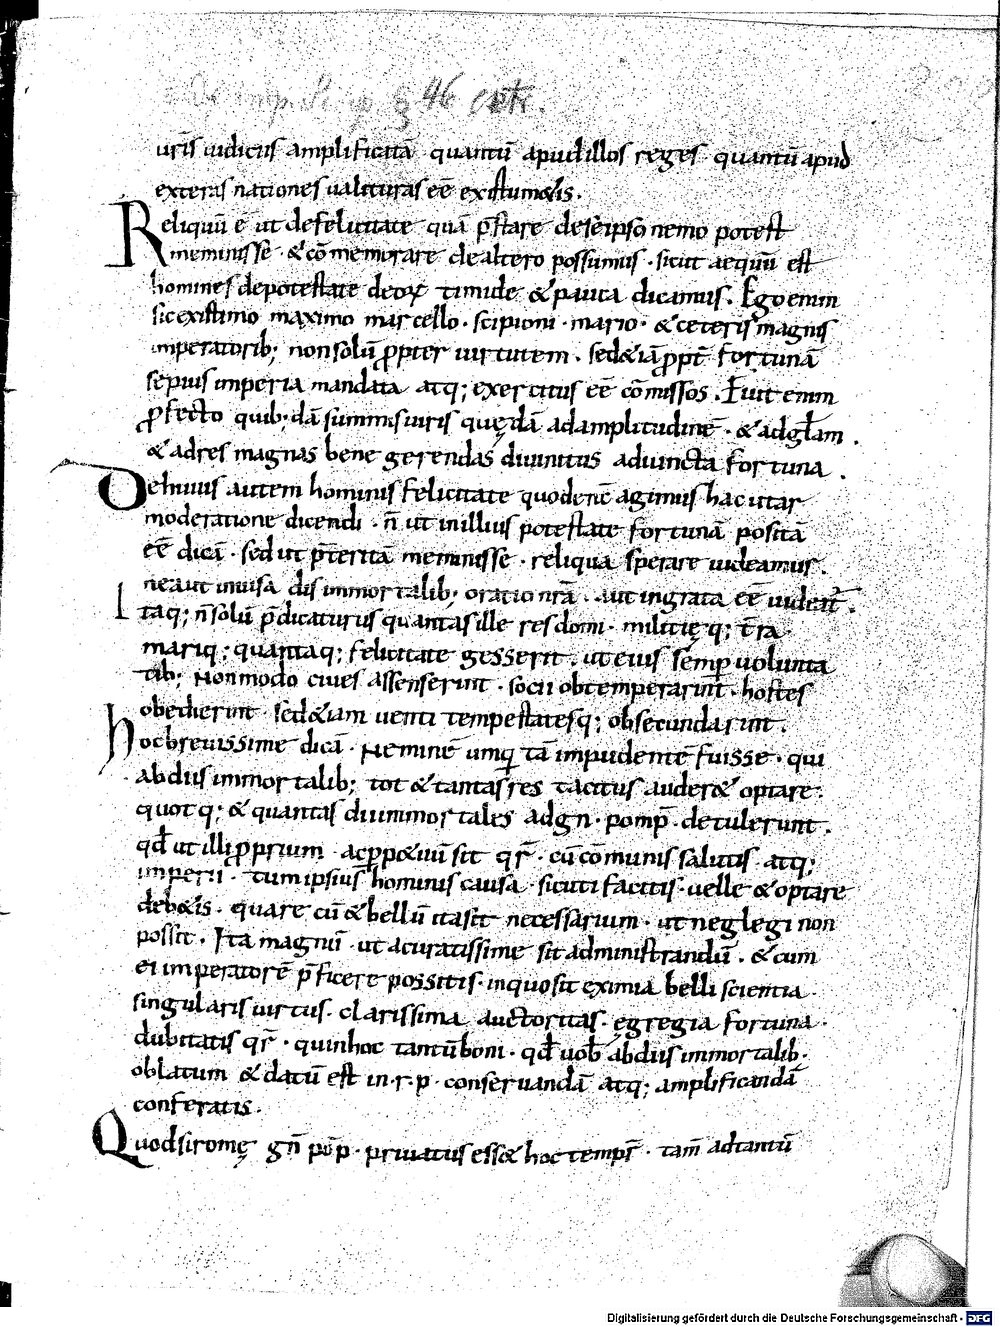 imp. 46
urīs iudiciis amplificatā quantū apud illos reges · quantū apud
exteras nationes ualituras eē existimetis.
Reliquū ē ut de felicitate quā p̄stare de se ipso nemo potest
meminisse · & cōmemorare de altero possumus · sicut aequū est
homines de potestate deoꝝ timide & pauca dicamus. Ego enim
sic existimo maximo marcello · scipioni · mario · & ceteris magnis
imperatorib; non solū ꝓpter uirtutem · sed &iā ꝓpt̄ fortunā
sepius imperia mandata atq; exercitus eē cōmissos. Fuit enim
ꝓfecto quib;dā summis uiris quędā ad amplitudinē · & ad gl̄am.
& ad res magnas bene gerendas diuinitus adiuncta fortuna.
De huius autem hominis felicitate quo de nc̄ agimus hac utar
moderatione dicendi · n̄ ut in illius potestate fortunā positā
eē dicā · sed ut p̄terita meminisse · reliqua sperare uideamur.
ne aut inuisa dis immortalib; oratio nr̄a · aut ingrata eē uideat̄.
Itaq; n̄ solū p̄dicaturus quantas ille res domi · militięq; t̄ra
mariq; quantaq; felicitate gesserit · ut eius semp uolunta
tib; non modo ciues assenserint · socii obtemperarint · hostes
obedierint · sed &iam uenti tempestatesq; obsecundarint.
hoc breuissime dicā · Neminē umq̄ tā impudentē fuisse · qui
ab diis immortalib; tot & tantas res tacitus auder& optare·
quot q; & quantas di immortales ad gn̄ · pomp̄ · detulerunt.
qd̄ ut illi ꝓprium · ac ꝑp&uū sit qr̄ · cū cōmunis salutis atq;
imperii · tum ipsius hominis causa · sicuti facitis · uelle & optare
deb&is · quare cū & bellū ita sit necessarium · ut neglegi non
possit. Ita magnū · ut acuratissime sit administrandū. & cum
ei imperatorē p̄ficere possitis · in quo sit eximia belli scientia
singularis uirtus · clarissima auctoritas · ęgregia fortuna·
dubitatis qr̄ · quin hoc tantū boni · qd̄ uob̄ ab diis immortalib·
oblatum & datū est in · r · p · conseruandā atq; amplificandā
conferatis.
Quod si romę gn̄ pōp · priuatus ess& hoc tempr̄ · tam̄ ad tantū
Digitalisierung gefördert durch die Deutsche Forschungsgemeinschaft - DFG